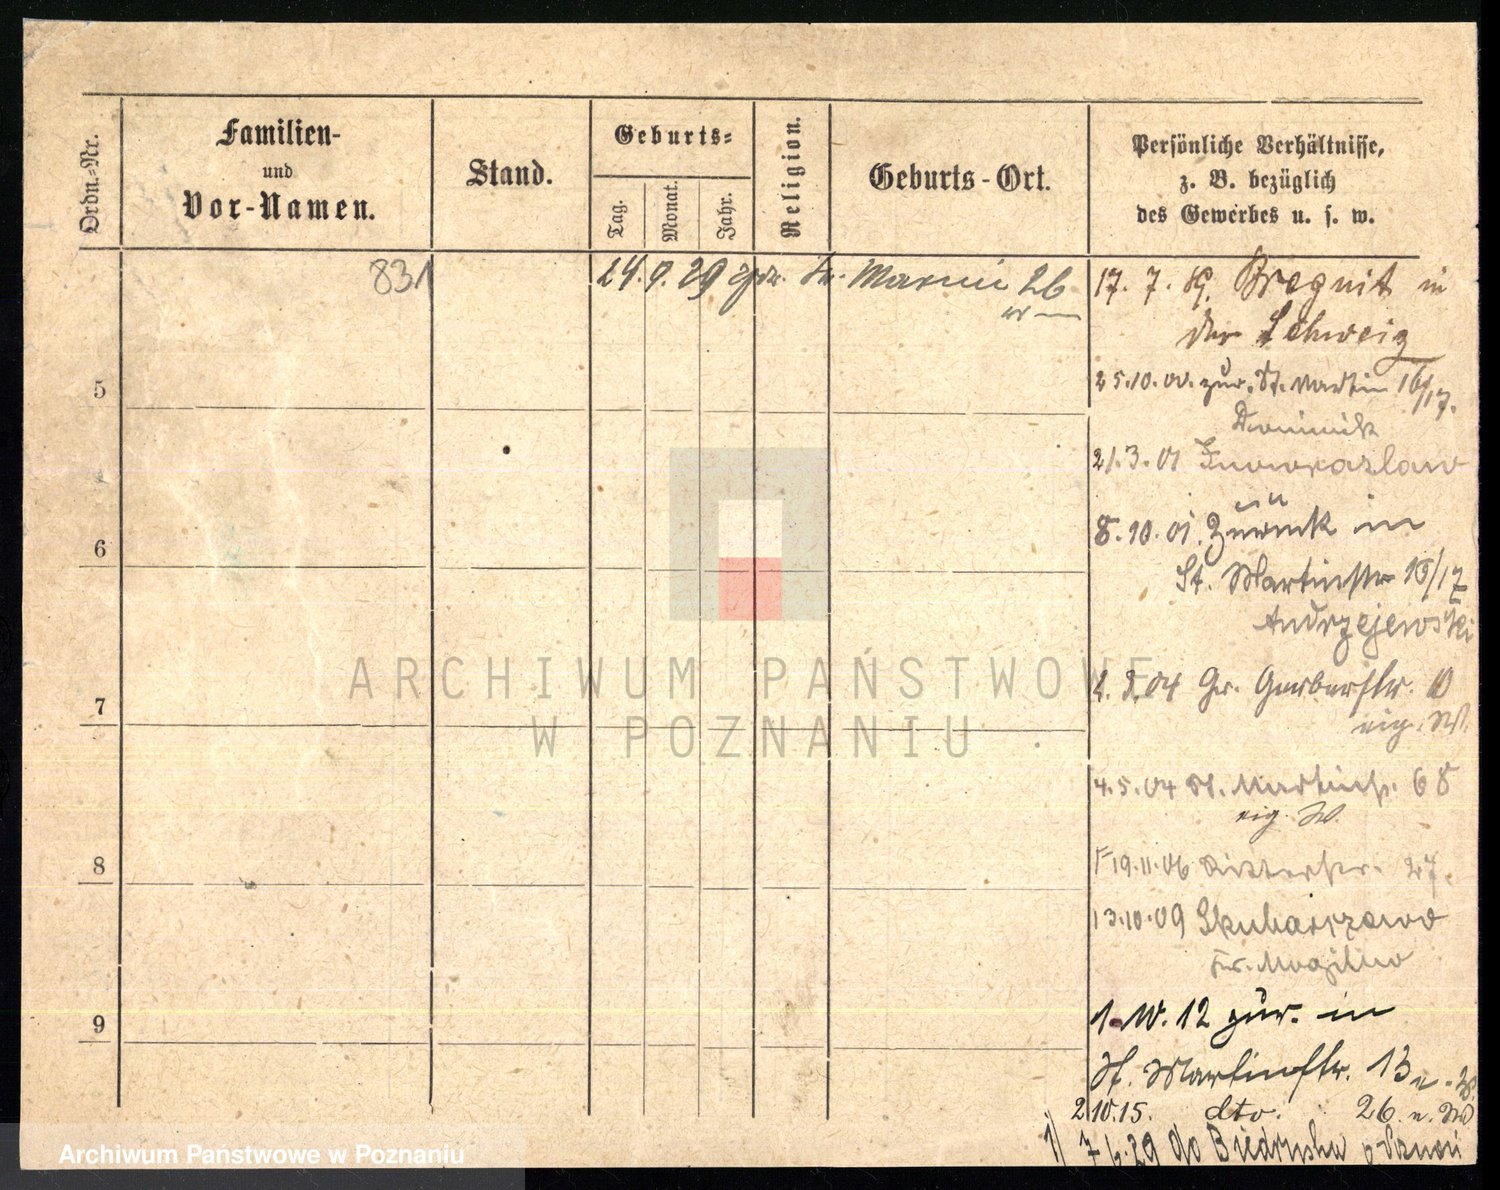 Ordn.-Nr.
Familien-
und
Vor-Namen.
Stand.
Geburts-
Tag.
Monat.
Jahr.
Religion.
Geburts-Ort.
Persönliche Verhältnisse,
z. B. bezüglich
des Gewerbes u. s. w.
831
24. 9. 29 26
17. 7. in
der Schweiz
25.10.00. zur. St. Martin 16/17.
Dominik
21.3.01 Inowrazlaw
8.10.01. Zurück in
St. Martinstr 16/17
Andrzejewski
2.3.04 Gr. Gerberstr.
eig. W.
4.5.04 St. Martinstr. 68
eig. W.
19.11.06 Ritterstr. 27.
13.10.09
Kr. Mogilno
1.10.12 zur. in
St. Martinstr. 13 e. W.
2.10.15. dto. 26 e. W
1) 7.6.29 do Biedruska
5
6
7
8
9
ARCHIWUM PAŃSTWOWE
W POZNANIU
Archiwum Państwowe w Poznaniu